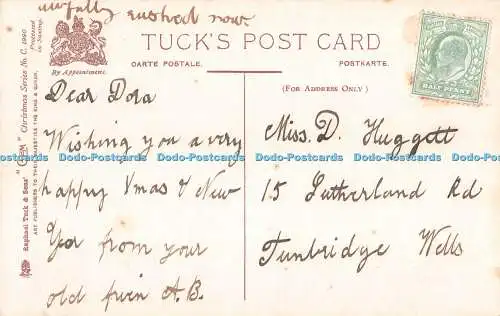 awfully rushed now.
TUCK'S POST CARD
By Appointment.
CARTE POSTALE.
POSTKARTE.
(FOR ADDRESS ONLY)
HALF PENNY
Raphael Tuck & Sons' "GEM" Christmas Series No. C. 1990
ART PUBLISHERS TO THEIR MAJESTIES THE KING & QUEEN.
Processed in Saxony.
Dear Dora
Wishing you a very
happy Xmas & New
Yea from your
old frien A.B.
Miss. D. Huggett
15 Sutherland Rd
Tunbridge Wells
Dodo-Postcards Dodo-Postcards Dodo-Postcards Dodo-Postcards Dodo-Postcards